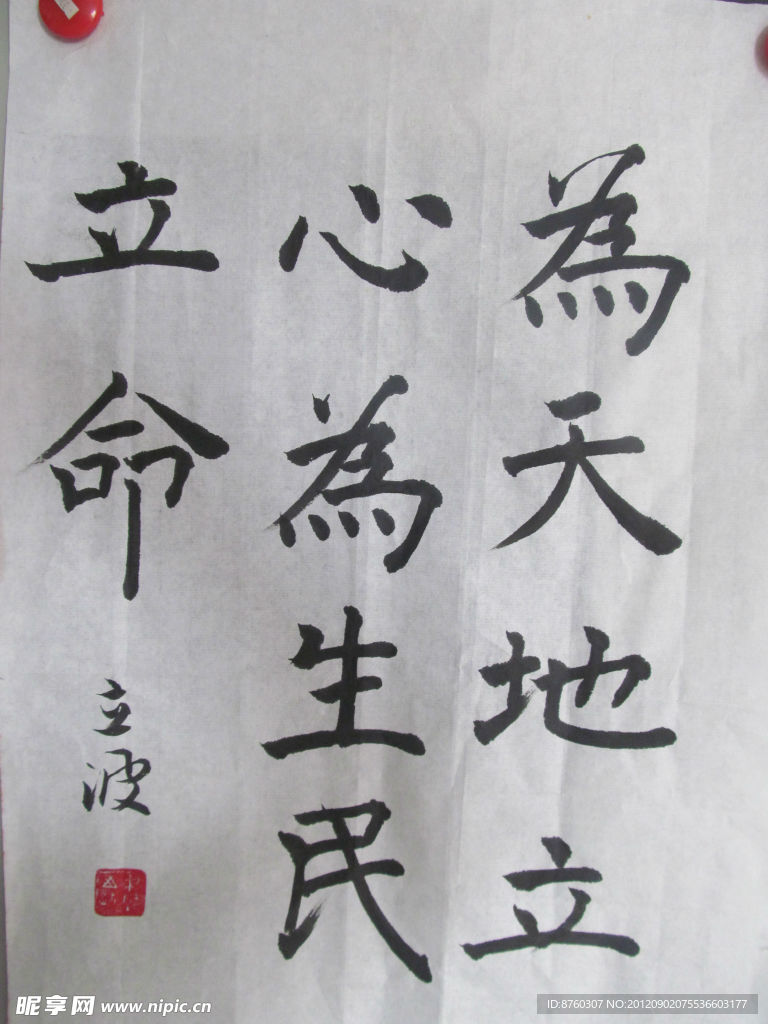 為天地立
心為生民
立命
立波
昵享网 www.nipic.cn
ID:8760307 NO:20120902075536603177